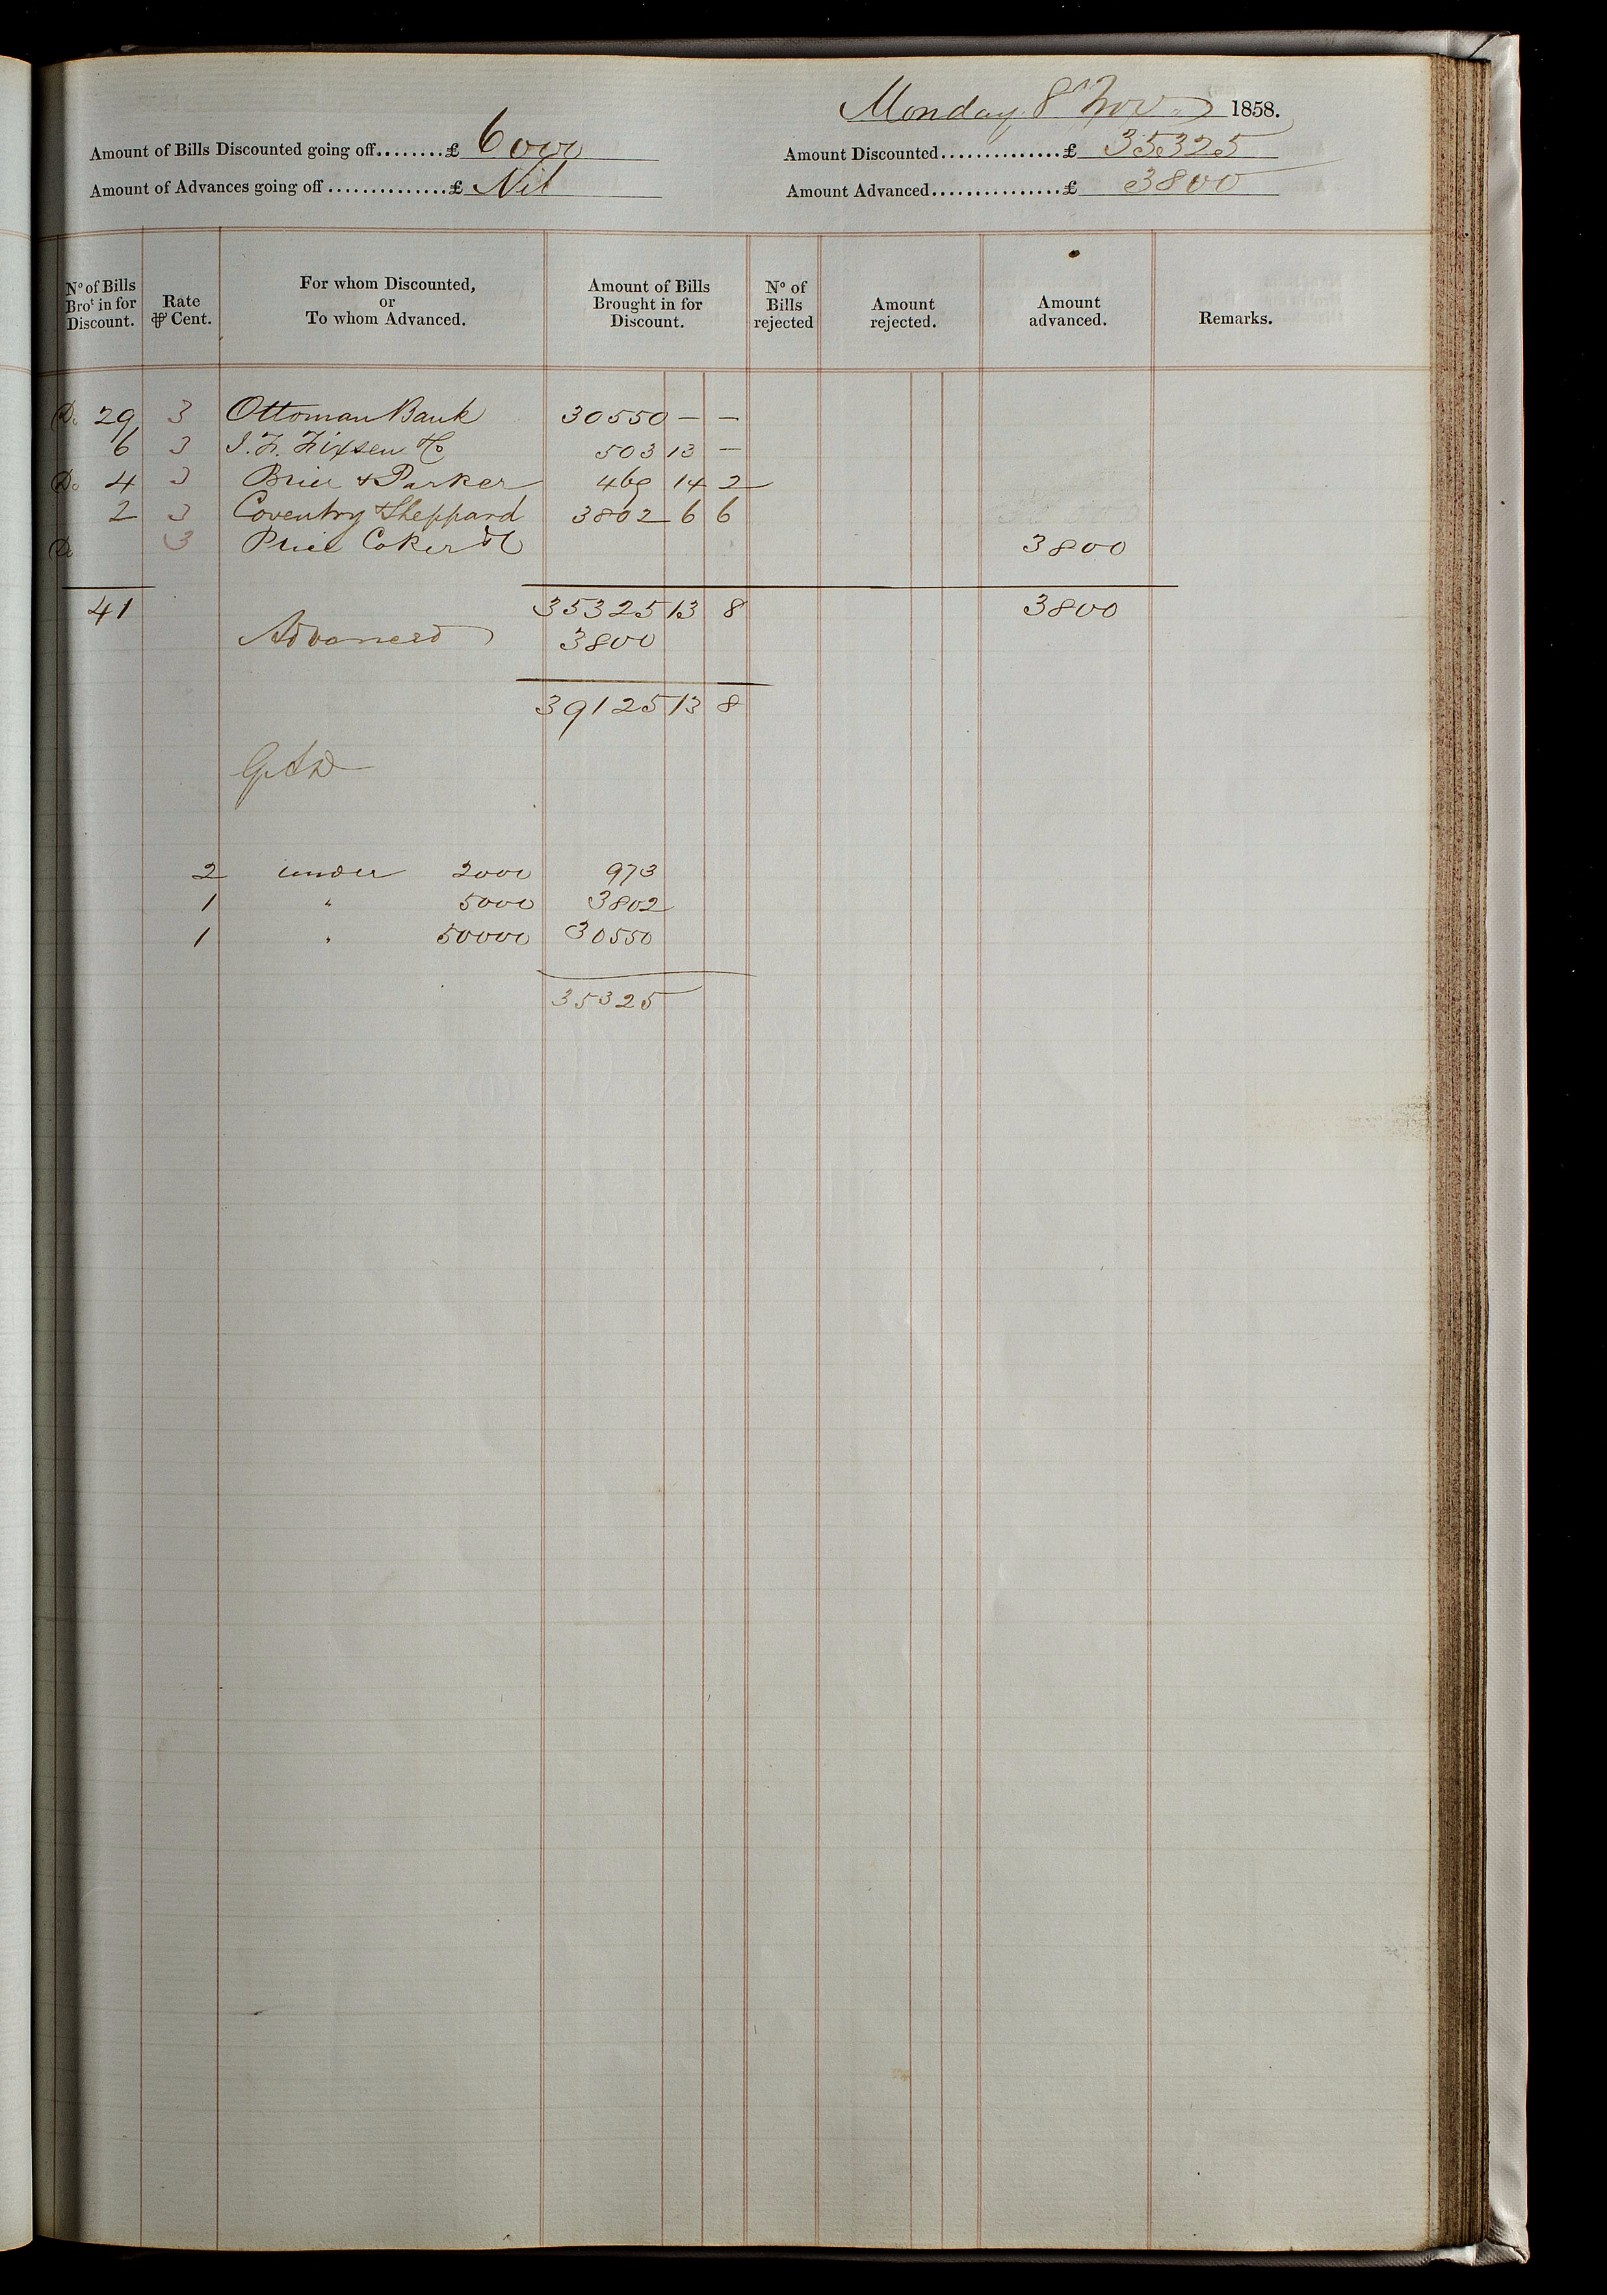 Monday 8th Novr 1858.
Amount of Bills Discounted going off........£ 6000 Amount Discounted..............£ 35325
Amount of Advances going off..............£ Nil Amount Advanced................£ 3800
No of Bills Brot in for Discount. Rate ⅌ Cent. For whom Discounted, or To whom Advanced. Amount of Bills Brought in for Discount. No of Bills rejected Amount rejected. Amount advanced. Remarks.
Do 29 3 Ottoman Bank 30550 – –
6 3 J. F. Fixsen & Co 503 13 –
Do 4 3 & Parker 469 14 2
2 3 Coventry & Sheppard 3802 6 6
Do 3 Price Coker & Co 3800
41 35325 13 8 3800
Advanced 3800
39125 13 8
2 under 2000 973
1 " 5000 3802
1 " 50000 30550
35325